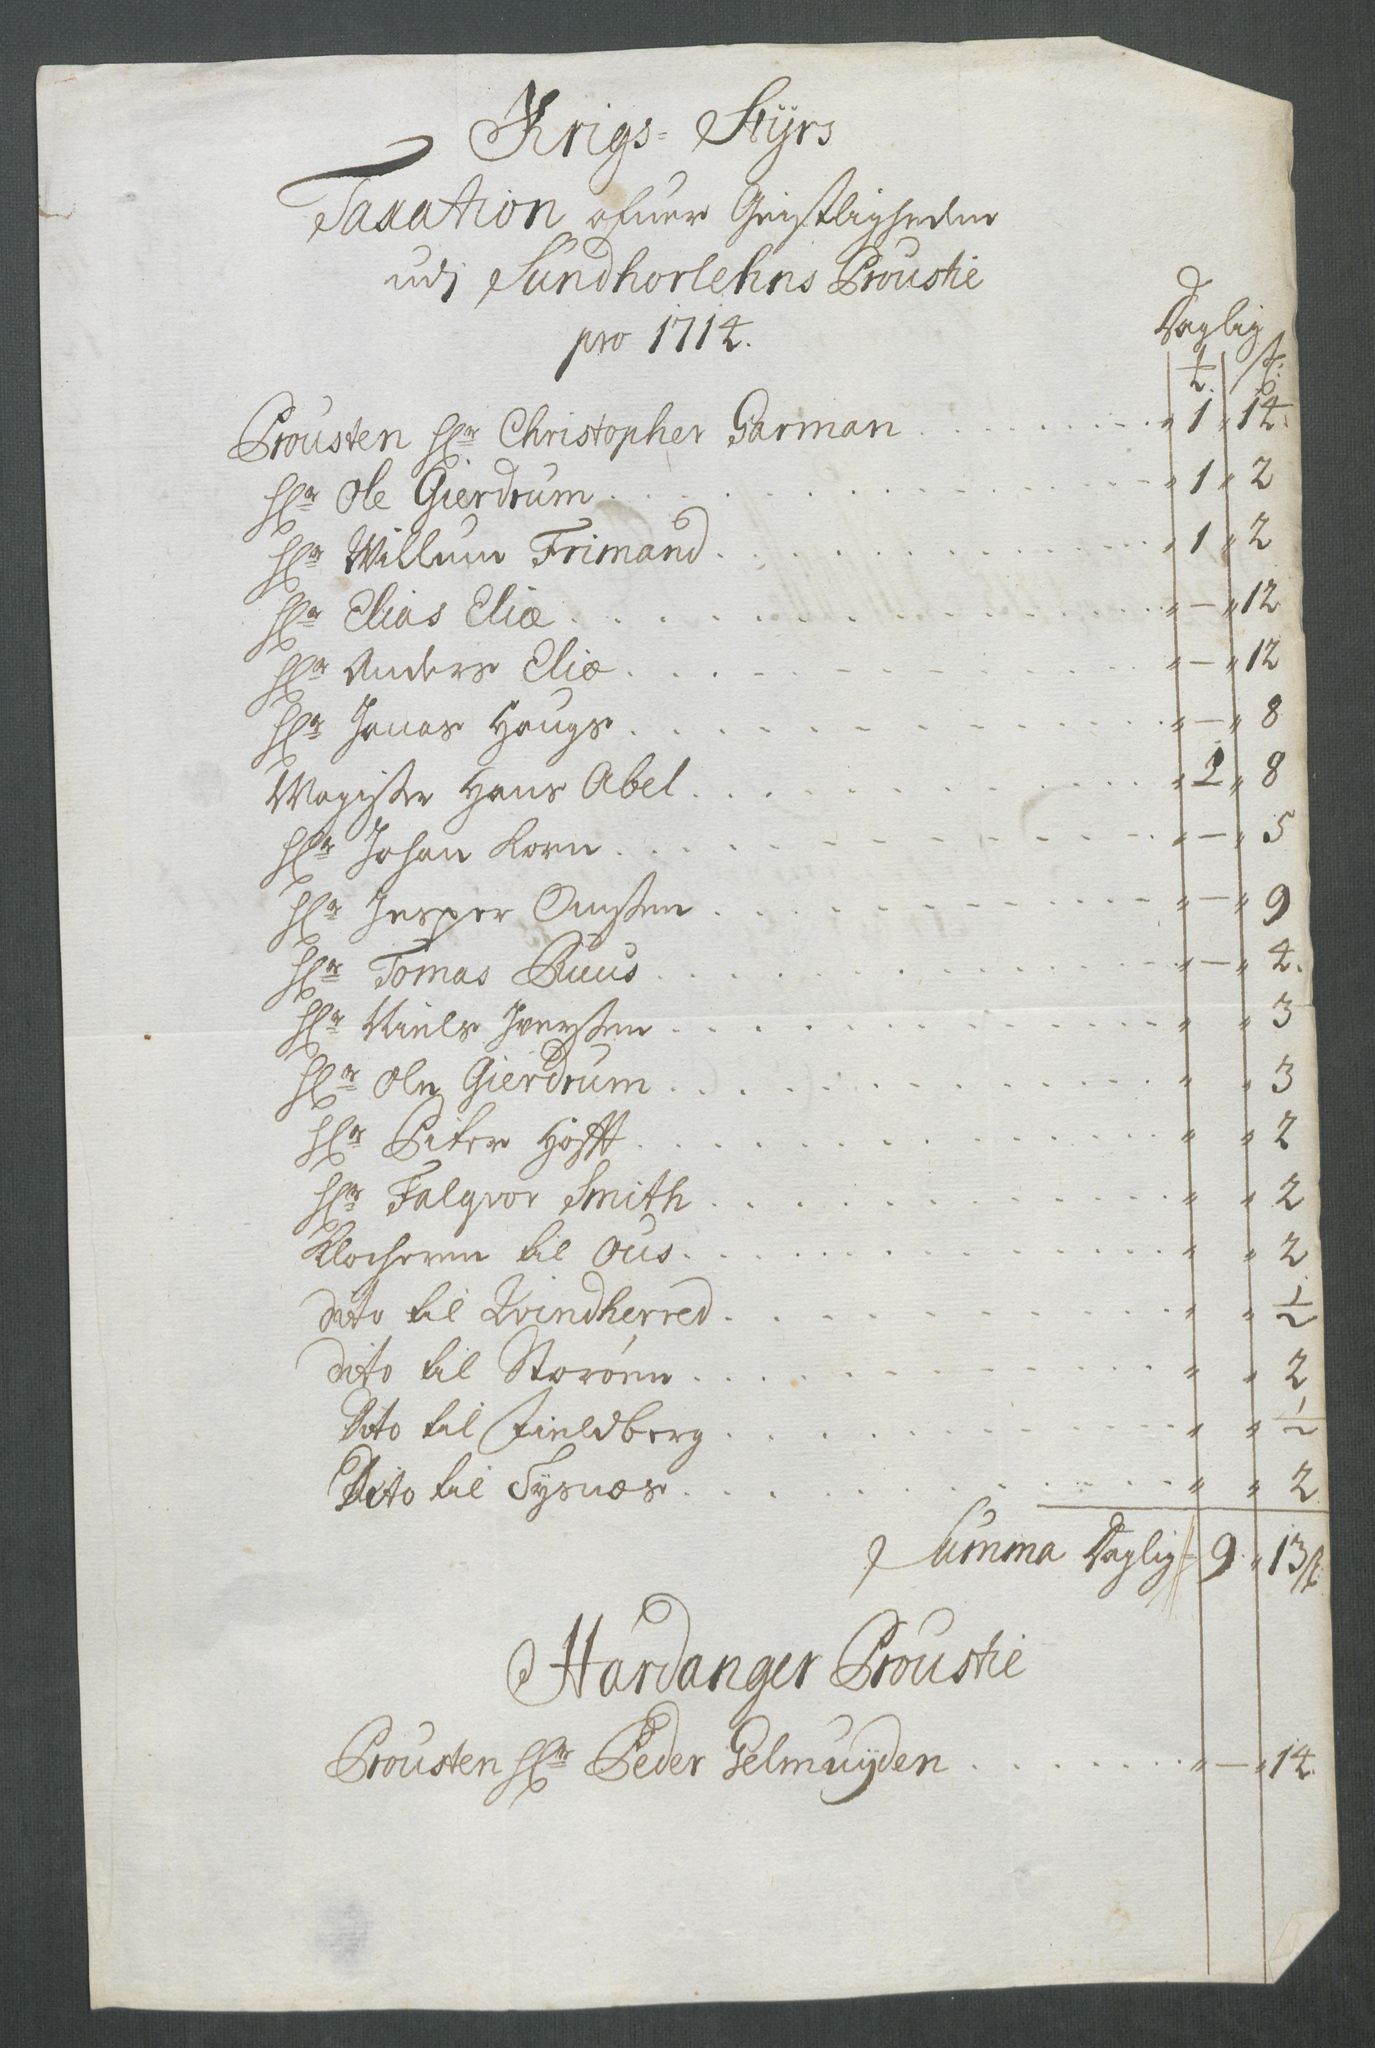 Krigs- Styrs
Taxation ofuer Geistligheden
udj Sundhorlehns Proustie
pro 1714.
Daglig
Prousten Hr Christopher Garman . . . . . . . . . " 1 " 14.
Hr Ole Gierdrum . . . . . . . . . " 1 " 2
Hr Willum Frimand . . . . . . . . . " 1 " 2
Hr Elias Eliæ . . . . . . . . . " — " 12
Hr Anders Eliæ . . . . . . . . . " — " 12
Hr Jonas Haugs . . . . . . . . . " — " 8
Magister Hans Abel . . . . . . . . . " 2 " 8
Hr Johan Korn . . . . . . . . . " — " 5
Hr Jesper . . . . . . . . . " — " 9
Hr Tomas Buus . . . . . . . . . " — " 4.
Hr Niels Iverssen . . . . . . . . . " " 3
Hr Ole Gierdrum . . . . . . . . . " " 3
Hr Piter Høfft . . . . . . . . . " " 2
Hr Falqvor Smith . . . . . . . . . " " 2
Klocheren til Ous . . . . . . . . . " " 2
dito til Qvindherred . . . . . . . . . " " 1/2
dito til Storöen . . . . . . . . . " " 2
Dito til Fieldberg . . . . . . . . . " " 1/2
Dito til Tysnæs . . . . . . . . . " " 2
Summa Daglig 9 " 13 ß
Hardanger Proustie
Prousten Hr Peder Gelmuyden . . . . . . " — " 14.